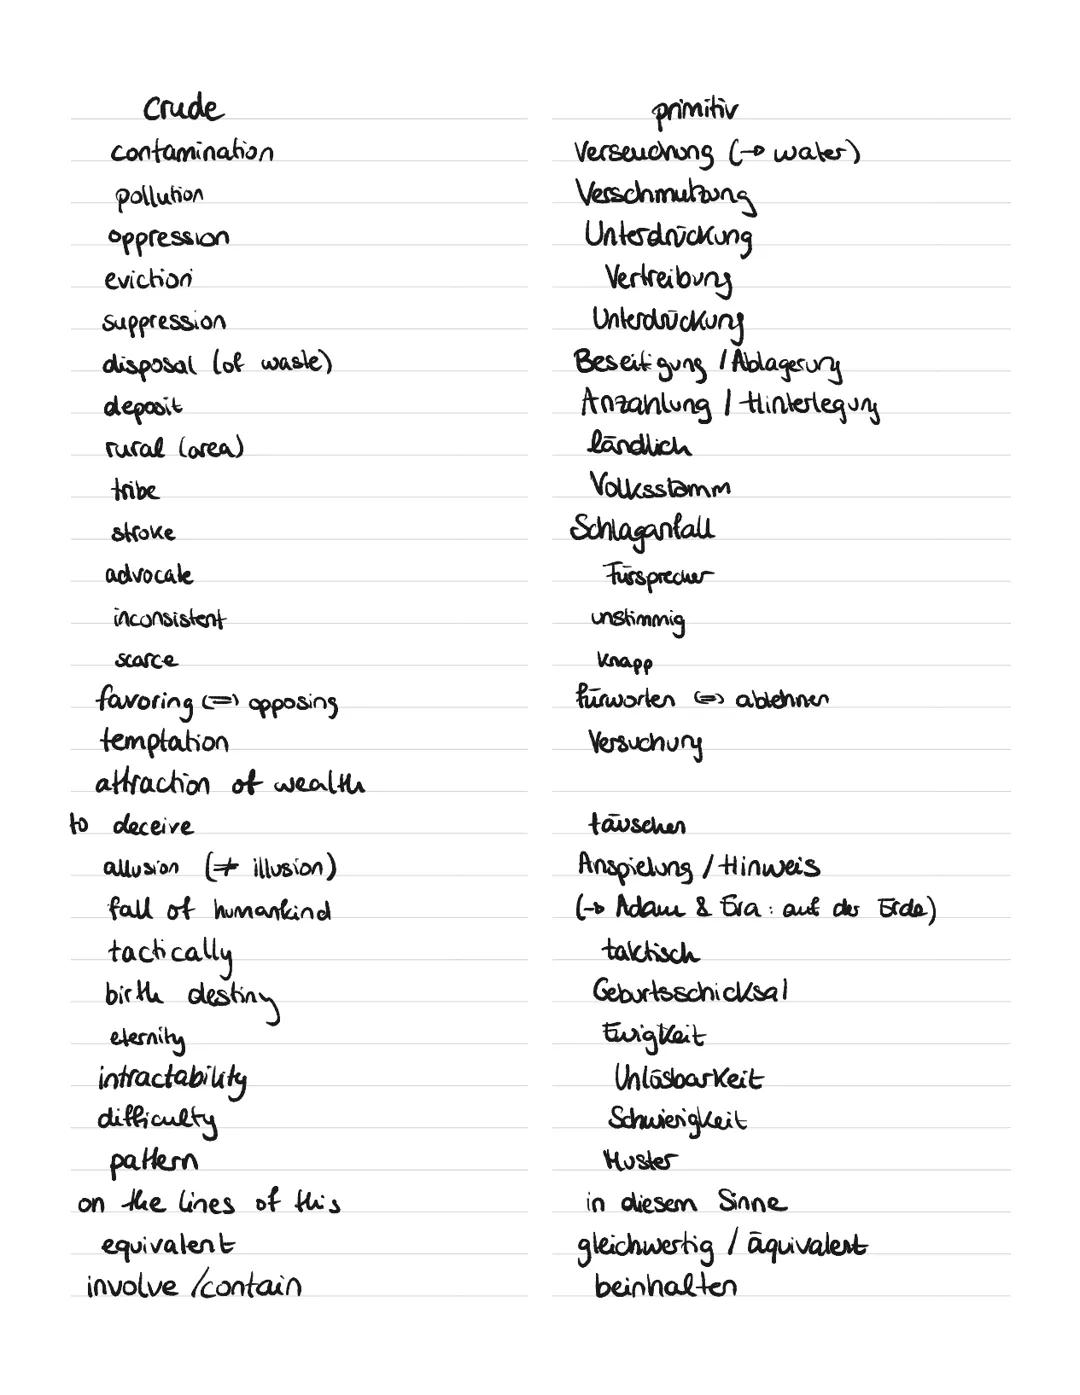 crude primitiv
contamination Verseuchung (→ water)
pollution Verschmutzung
oppression Unterdrückung
eviction Vertreibung
suppression Unterdrückung
disposal (of waste) Beseitigung / Ablagerung
deposit Anzahlung / Hinterlegung
rural (area) ländlich
tribe Volksstamm
stroke Schlaganfall
advocate Fürsprecher
inconsistent unstimmig
scarce knapp
favoring (=) opposing fürworten (=) ablehnen
temptation Versuchung
attraction of wealth
to deceive täuschen
allusion (≠ illusion) Anspielung / Hinweis
fall of humankind (→ Adam & Eva: auf der Erde)
tactically taktisch
birth destiny Geburtsschicksal
eternity Ewigkeit
intractability Unlösbarkeit
difficulty Schwierigkeit
pattern Muster
on the lines of this in diesem Sinne
equivalent gleichwertig / äquivalent
involve / contain beinhalten